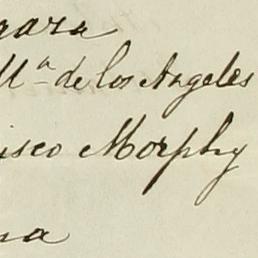 gara
Mª de los Angeles
isco Morphy
na